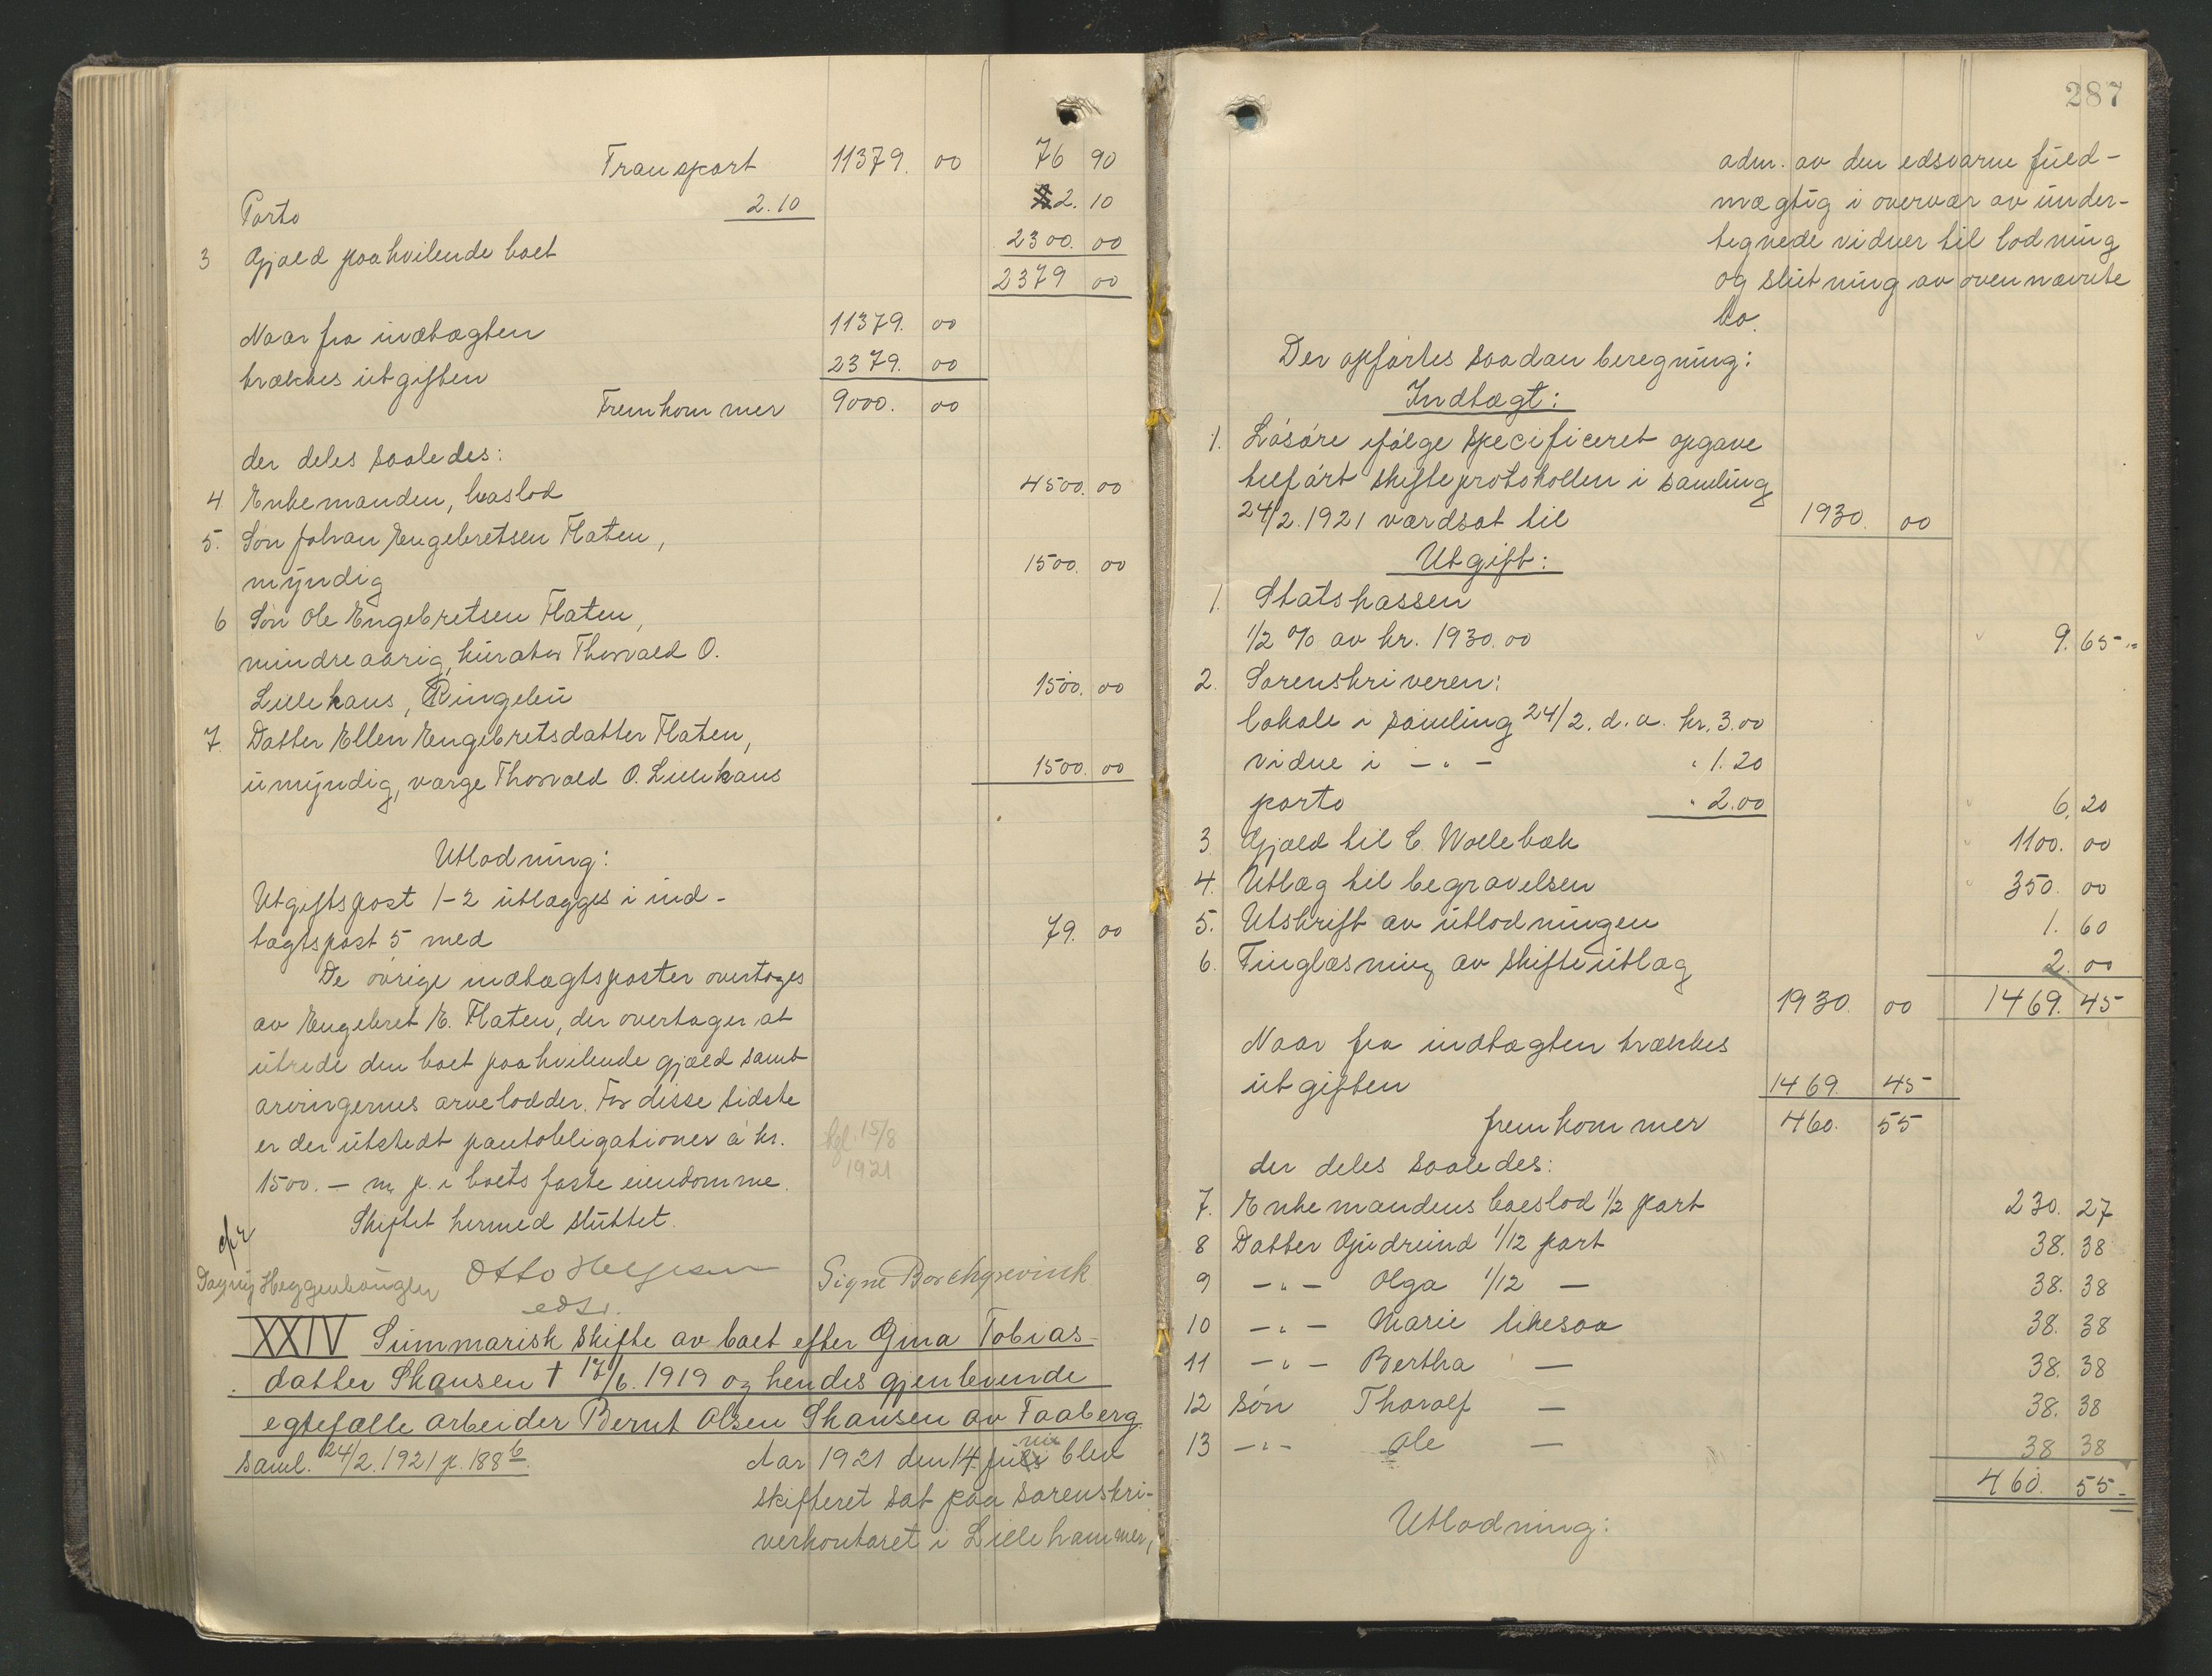 Transport 11379. 00 76 90
Porto 2.10 2. 10
3 Gjæld paahvilende boet 2300. 00
2379 00
Naar fra indtægten 11379. 00
trækkes utgiften 2379. 00
Fremkommer 9000. 00
der deles saaledes:
4 Enkemanden, boslod 4500. 00
5. Søn Johan Engebretsen Flaten,
myndig 1500. 00
6 Søn Ole Engebretsen Flaten,
mindreaarig, kurator Thorvald O.
Lillehaus, Ringebu 1500. 00
7. Datter Ellen Engebretsdatter Flaten,
umyndig, værge Thorvald O. Lillehaus 1500. 00
Utlodning:
Utgiftspost 1-2 utlægges i ind-
tægtspost 5 med 79. 00
De øvrige indtægtsposter overtages
av Engebret E. Flaten, der overtager at
utrede den boet paahvilende gjæld samt
arvingernes arvelodder. For disse sidste
er der utstedt pantobligationer á kr.
1500. — m. p. i boets faste eiendomme.
tgl. 15/8
1921
Skiftet hermed sluttet.
Dagny Heggenhaugen Otto Helgesen Signe Borchgrevink
eds.
XXIV Summarisk skifte av boet efter Gina Tobias-
datter Skansen † 17/6. 1919 og hendes gjenlevende
egtefælle arbeider Bernt Olsen Skansen av Faaberg
Saml. 24/2. 1921 p. 188 b. Aar 1921 den 14. juni blev
skifteret sat paa sorenskri-
verkontoret i Lillehammer,
287
adm. av den edsvorne fuld-
mægtig i overvær av under-
tegnede vidner til lodning
og slutning av ovennævnte
bo.
Der opførtes saadan beregning:
Indtægt:
1. Løsøre ifølge specificeret opgave
tilført skifteprotokollen i samling
24/2. 1921 værdsat til 1930. 00
Utgift:
1. Statskassen
1/2 % av kr. 1930.00 9. 65
2. Sorenskriveren:
lokale i samling 24/2. d. a. kr. 3.00
vidne i - " - " 1.20
porto " 2.00 6. 20
3. Gjæld til C. Wollebæk 1100. 00
4. Utlæg til begravelsen 350. 00
5. Utskrift av utlodningen 1. 60
6. Tinglæsning av skifteutlæg 2. 00
1930. 00 1469. 45
Naar fra indtægten trækkes
utgiften 1469. 45
fremkommer 460. 55
der deles saaledes:
7. Enkemandens boeslod 1/2 part 230. 27
8 Datter Gudrund 1/12 part 38. 38
9 - " - Olga 1/12 — 38. 38
10 - " - Marie likesaa 38. 38
11 - " - Bertha — 38. 38
12 Søn Thoralf — 38. 38
13 - " - Ole — 38 38
460. 55
Utlodning: